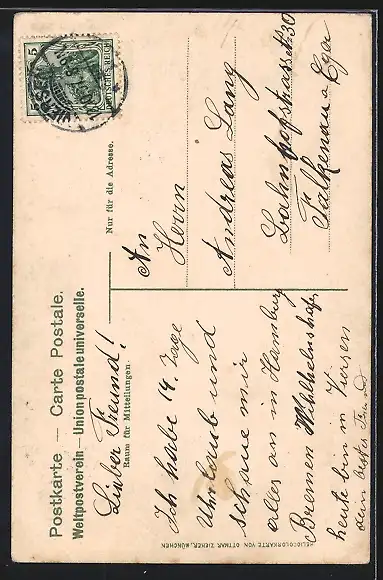 Postkarte — Carte Postale.
Weltpostverein — Union postale universelle.
Nur für die Adresse.
Raum für Mitteilungen
5
DEUTSCHES REICH
VIERSEN
An
Herrn
Andreas Lang
Bahnhofstrasse 30
Falkenau a Eger
Lieber Freund!
Ich habe 14 Tage
Uhrlaub und
schaue mir
alles an in Hamburg
Bremen Wihlhelmshafen
heute bin in Viersen
dein bester Freund
HELIOCOLORKARTE VON OTTMAR ZIEHER, MÜNCHEN